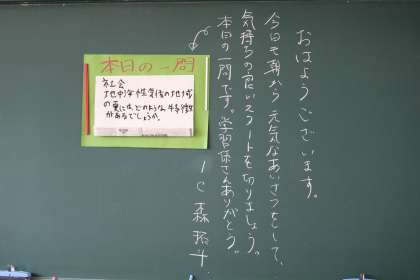 おはようございます。
今日も朝から元気なあいさつをして、
気持ちの良いスタートを切りましょう。
本日の一問です。学習係さんありがとう。
1C 森 拓斗
本日の一問
社会
地中海性気候の地域
の夏には、どのような特徴
があるでしょうか。